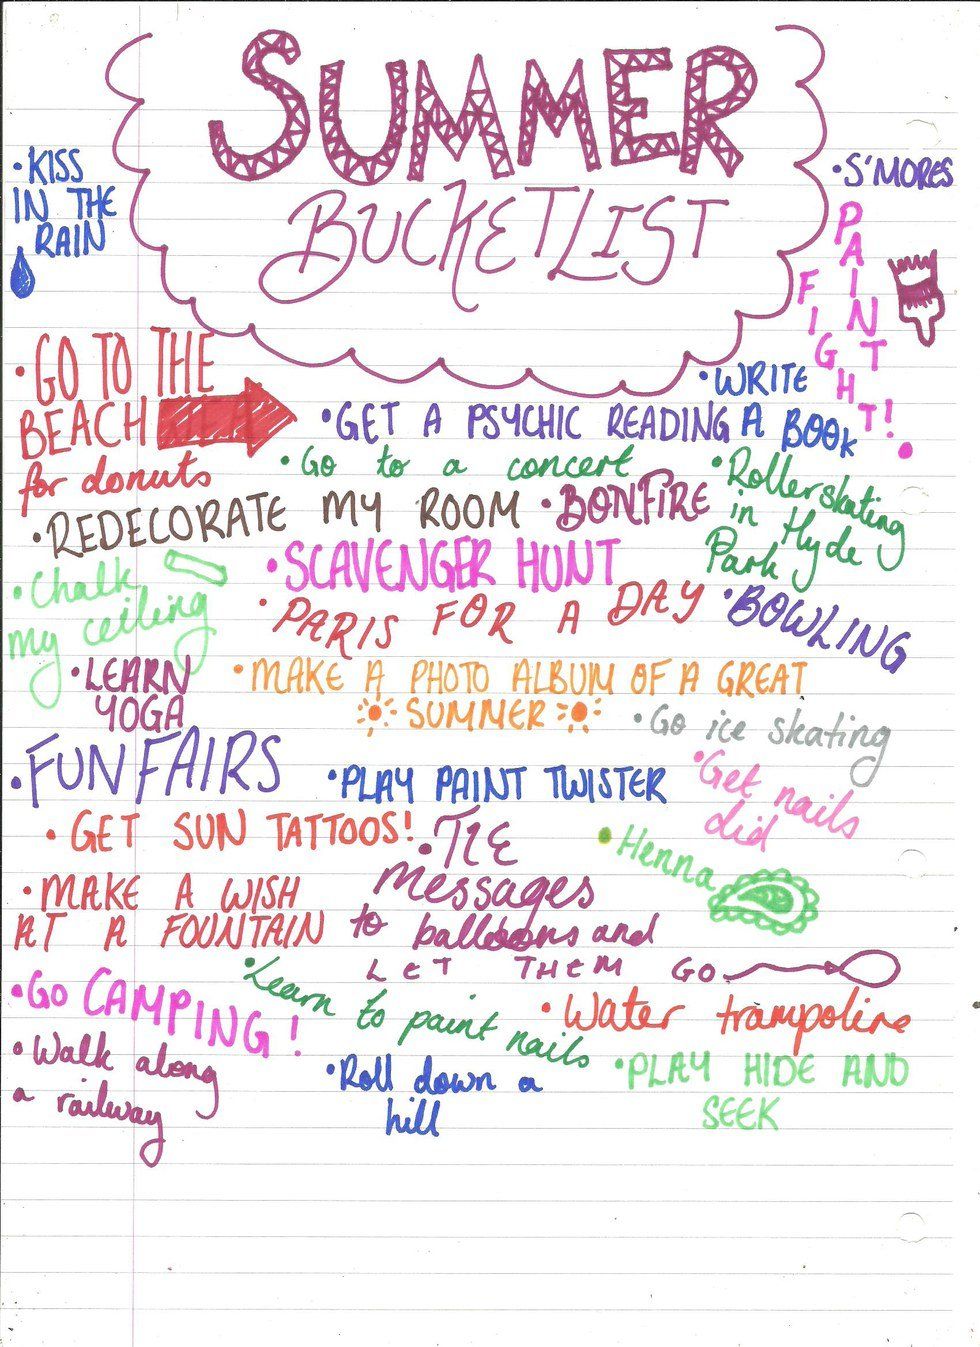 SUMMER
BUCKETLIST
• KISS
IN THE
RAIN
• S'MORES
PAINT
FIGHT!
• GO TO THE
BEACH
for donuts
• WRITE
A BOOK
• GET A PSYCHIC READING
• Go to a concert
• Rollerskating
in Hyde
Park
• REDECORATE MY ROOM
• BONFIRE
• Chalk
my ceiling
• SCAVENGER HUNT
• PARIS FOR A DAY
• BOWLING
• LEARN
YOGA
• MAKE A PHOTO ALBUM OF A GREAT
SUMMER
• Go ice skating
• FUNFAIRS
• PLAY PAINT TWISTER
• Get nails
did
• GET SUN TATTOOS!
• TIE
messages
to balloons and
LET THEM GO
• Henna
• MAKE A WISH
AT A FOUNTAIN
• GO CAMPING!
• Learn to paint nails
• Water trampoline
• Walk along
a railway
• Roll down a
hill
• PLAY HIDE AND
SEEK